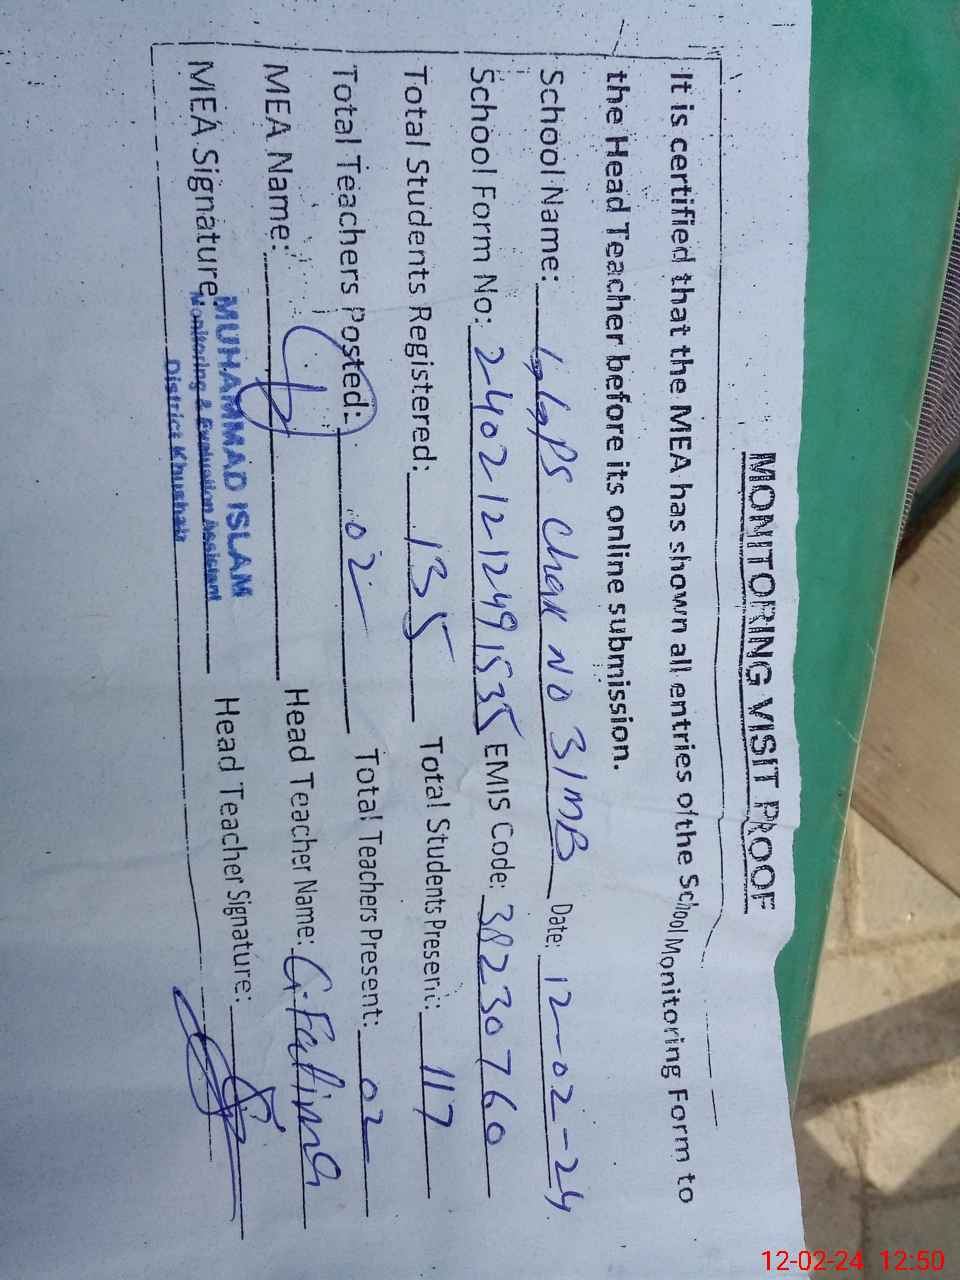 MONITORING VISIT PROOF
It is certified that the MEA has shown all entries of the School Monitoring Form to
the Head Teacher before its online submission.
School Name: GGPS Chak No 31MB Date: 12-02-24
School Form No: 24021212491535 EMIS Code: 38230760
Total Students Registered: 135 Total Students Present: 117
Total Teachers Posted: 02 Total Teachers Present: 02
MEA Name: Head Teacher Name: G.Fatima
MEA Signature Head Teacher Signature:
MUHAMMAD ISLAM
Monitoring & Evaluation Assistant
District Khushab
12-02-24 12:50